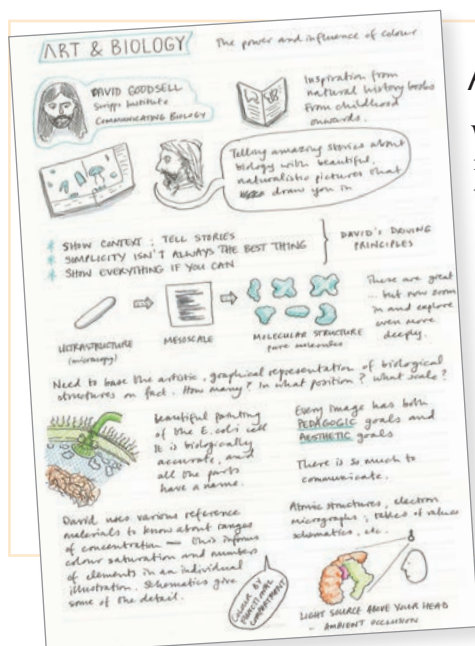 ART & BIOLOGY
The power and influence of colour
DAVID GOODSELL
Scripps Institute
COMMUNICATING BIOLOGY
Inspiration from
natural history books
from childhood
onwards.
Telling amazing stories about
biology with beautiful,
naturalistic pictures that
draw you in
* SHOW CONTEXT : TELL STORIES
* SIMPLICITY ISN'T ALWAYS THE BEST THING
* SHOW EVERYTHING IF YOU CAN
DAVID'S DRIVING
PRINCIPLES
ULTRASTRUCTURE
(microscopy)
MESOSCALE
MOLECULAR STRUCTURE
pure molecules
These are great
... but now zoom
in and explore
even more
deeply.
Need to base the artistic, graphical representation of biological
structures on fact. How many? In what position? What scale?
Beautiful painting
of the E. coli cell
It is biologically
accurate, and
all the parts
have a name.
Every image has both
PEDAGOGIC goals and
AESTHETIC goals
There is so much to
communicate.
David uses various reference
materials to know about ranges
of concentration — this informs
colour saturation and numbers
of elements in an individual
illustration. Schematics give
some of the detail.
Atomic structures, electron
micrographs, tables of values
schematics, etc.
COLOUR BY
FUNCTIONAL
COMPARTMENT
LIGHT SOURCE ABOVE YOUR HEAD
- AMBIENT OCCLUSION